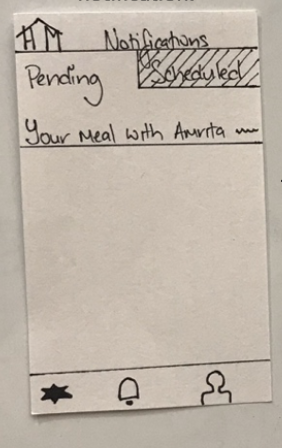 HM Notifications
Pending Scheduled
Your Meal with Amrita